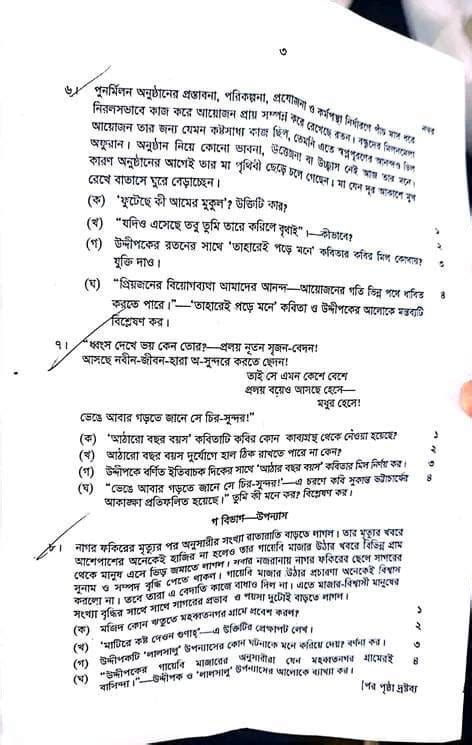 ৩
নম্বর
৬। পুনর্মিলন অনুষ্ঠানের প্রস্তাবনা, পরিকল্পনা, প্রযোজনা ও কর্মপন্থা নির্ধারণে পাঁচ মাস ধরে
নিরলসভাবে কাজ করে আয়োজন প্রায় সম্পন্ন করে রেখেছে রতন। বন্ধুদের মিলনমেলা
আয়োজন তার জন্য যেমন কষ্টসাধ্য কাজ ছিল, তেমনি এতে স্বপ্নপূরণের আনন্দও ছিল
অফুরান। অনুষ্ঠান নিয়ে কোনো ভাবনা, উত্তেজনা বা উচ্ছ্বাস নেই আজ তার মনে।
কারণ অনুষ্ঠানের আগেই তার মা পৃথিবী ছেড়ে চলে গেছেন। মা যেন দূর আকাশে মুখ
রেখে বাতাসে ঘুরে বেড়াচ্ছেন।
(ক) ‘ফুটেছে কী আমের মুকুল’? উক্তিটি কার? ১
(খ) “যদিও এসেছে তবু তুমি তারে করিলে বৃথাই”।—কীভাবে? ২
(গ) উদ্দীপকের রতনের সাথে ‘তাহারেই পড়ে মনে’ কবিতার কবির মিল কোথায়? ৩
যুক্তি দাও।
(ঘ) “প্রিয়জনের বিয়োগব্যথা আমাদের আনন্দ—আয়োজনের গতি ভিন্ন পথে ধাবিত ৪
করতে পারে।”—‘তাহারেই পড়ে মনে’ কবিতা ও উদ্দীপকের আলোকে মন্তব্যটি
বিশ্লেষণ কর।
৭। “ধ্বংস দেখে ভয় কেন তোর?—প্রলয় নূতন সৃজন-বেদন!
আসছে নবীন-জীবন-হারা অ-সুন্দরে করতে ছেদন!
তাই সে এমন কেশে বেশে
প্রলয় বয়েও আসছে হেসে—
মধুর হেসে!
ভেঙে আবার গড়তে জানে সে চির-সুন্দর!”
(ক) ‘আঠারো বছর বয়স’ কবিতাটি কবির কোন কাব্যগ্রন্থ থেকে নেওয়া হয়েছে? ১
(খ) আঠারো বছর বয়স দুর্যোগে হাল ঠিক রাখতে পারে না কেন? ২
(গ) উদ্দীপকে বর্ণিত ইতিবাচক দিকের সাথে ‘আঠার বছর বয়স’ কবিতার মিল নির্ণয় কর। ৩
(ঘ) “ভেঙে আবার গড়তে জানে সে চির-সুন্দর!—এ চরণে কবি সুকান্ত ভট্টাচার্যের ৪
আকাঙ্ক্ষা প্রতিফলিত হয়েছে।” তুমি কী মনে কর? বিশ্লেষণ কর।
গ বিভাগ—উপন্যাস
৮। নাগর ফকিরের মৃত্যুর পর অনুসারীর সংখ্যা রাতারাতি বাড়তে লাগল। তার মৃত্যুর খবরে
আশেপাশের অনেকেই হাজির না হলেও তার গায়েবি মাজার উঠার খবরে বিভিন্ন গ্রাম
থেকে মানুষ এসে ভিড় জমাতে লাগল। সবার নজরানায় নাগর ফকিরের ছেলে সাগরের
সুনাম ও সম্পদ বৃদ্ধি পেতে থাকল। গায়েবি মাজার উঠার প্রচারণা অনেকেই বিশ্বাস
করলো না। তবে তারা এ বেদাতি কাজে বাধাও দিল না। এতে মাজার-বিশ্বাসী মানুষের
সংখ্যা বৃদ্ধির সাথে সাথে সাগরের প্রভাব ও পয়সা দুটোই বাড়তে লাগল।
(ক) মজিদ কোন ঋতুতে মহব্বতনগর গ্রামে প্রবেশ করল? ১
(খ) ‘মাটিরে কষ্ট দেওন গুণাহ্’—এ উক্তিটির প্রেক্ষাপট লেখ। ২
(গ) উদ্দীপকটি ‘লালসালু’ উপন্যাসের কোন ঘটনাকে মনে করিয়ে দেয়? বর্ণনা কর। ৩
(ঘ) “উদ্দীপকের গায়েবি মাজারের অনুসারীরা যেন মহব্বতনগর গ্রামেরই ৪
বাসিন্দা।”—উদ্দীপক ও ‘লালসালু’ উপন্যাসের আলোকে ব্যাখ্যা কর।
[পর পৃষ্ঠা দ্রষ্টব্য